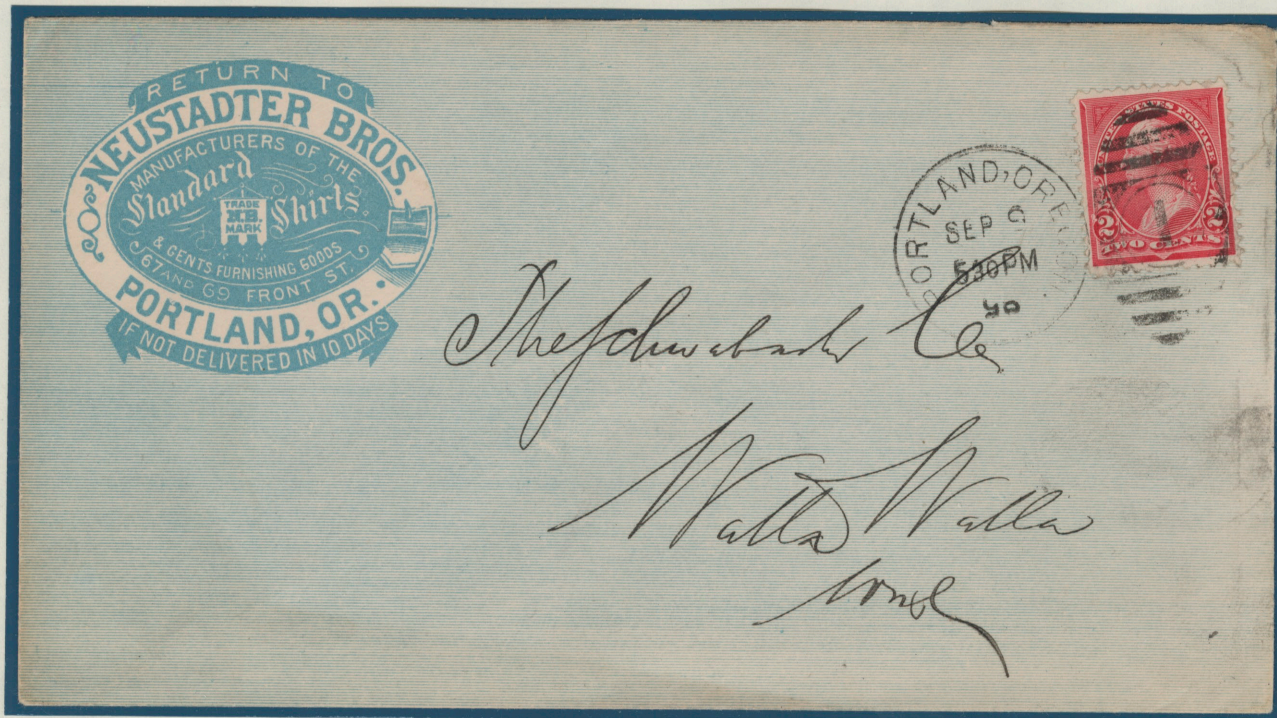 RETURN TO
NEUSTADTER BROS.
MANUFACTURERS OF THE
Standard
TRADE
N.B.
MARK
Shirts
& GENTS FURNISHING GOODS
67 AND 69 FRONT ST.
PORTLAND, OR.
IF NOT DELIVERED IN 10 DAYS
PORTLAND, OREGON.
SEP 6
530PM
98
UNITED STATES POSTAGE
2 2
TWO CENTS
1
The Schwabacher Co
Walla Walla
Wash